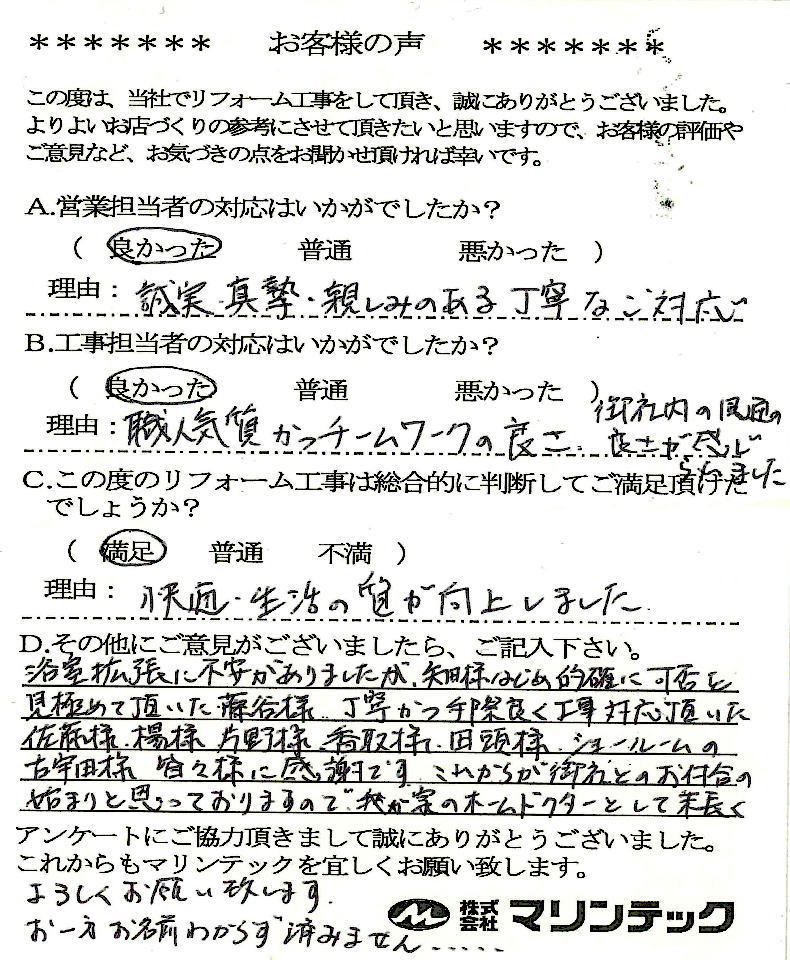 ******* お客様の声 *******
この度は、当社でリフォーム工事をして頂き、誠にありがとうございました。
よりよいお店づくりの参考にさせて頂きたいと思いますので、お客様の評価や
ご意見など、お気づきの点をお聞かせ頂ければ幸いです。
A.営業担当者の対応はいかがでしたか？
( 良かった 普通 悪かった )
理由：誠実・真摯・親しみのある丁寧なご対応
B.工事担当者の対応はいかがでしたか？
( 良かった 普通 悪かった )
理由：職人気質かつチームワークの良さ、御社内の風通の
良さが感じ
られました
C.この度のリフォーム工事は総合的に判断してご満足頂けた
でしょうか？
( 満足 普通 不満 )
理由：快適・生活の質が向上しました
D.その他にご意見がございましたら、ご記入下さい。
浴室拡張に不安がありましたが、矢田様はじめ的確に可否を
見極めて頂いた藤谷様、丁寧かつ手際良く工事対応頂いた
佐藤様、楊様、片野様、香取様、田頭様、ショールームの
古宇田様 皆々様に感謝です。これからが御社とのお付合の
始まりと思っておりますので、我が家のホームドクターとして末長く
アンケートにご協力頂きまして誠にありがとうございました。
これからもマリンテックを宜しくお願い致します。
よろしくお願い致します。
お一方お名前わからず済みません.....
株式会社 マリンテック